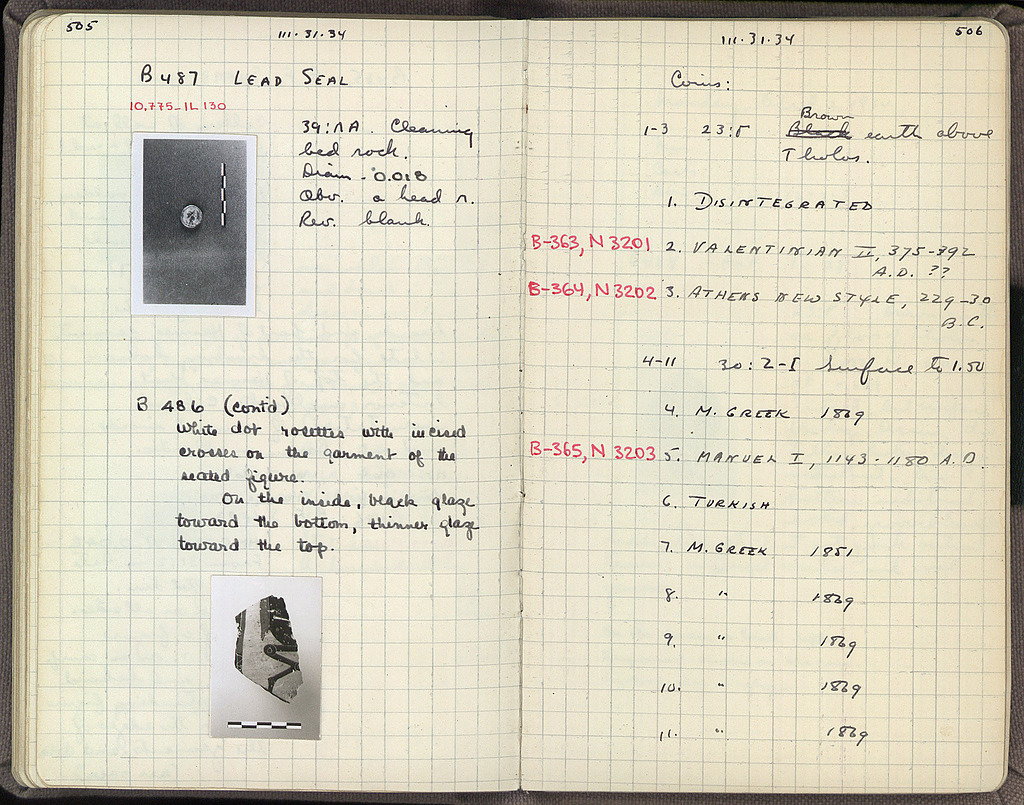 505
III·31·34
B 487 LEAD SEAL
10.775-IL 130
39:ΛA. Cleaning
bed rock.
Diam - 0.018
Obv. a head r.
Rev. blank.
B 486 (cont'd)
White dot rosettes with incised
crosses on the garment of the
seated figure.
On the inside, black glaze
toward the bottom, thinner glaze
toward the top.
506
III·31·34
Coins:
Brown
1-3 23:Γ Black earth above
Tholos.
1. DISINTEGRATED
B-363, N 3201 2. VALENTINIAN II, 375-392
A.D. ??
B-364, N 3202 3. ATHENS NEW STYLE, 229-30
B.C.
4-11 30: Surface to 1.50
4. M. GREEK 1869
B-365, N 3203 5. MANUEL I, 1143-1180 A.D.
6. TURKISH
7. M. GREEK 1851
8. " 1869
9. " 1869
10. " 1869
11. " 1869